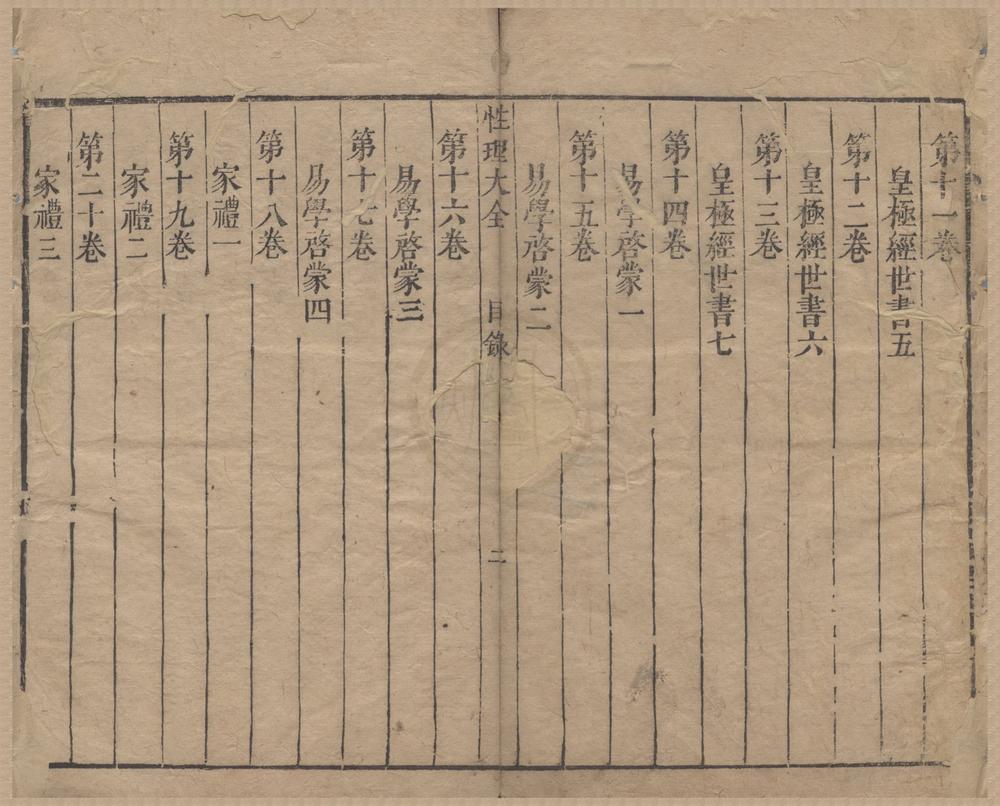 第十一卷
皇極經世書五
第十二卷
皇極經世書六
第十三卷
皇極經世書七
第十四卷
易學啓蒙一
第十五卷
易學啓蒙二
性理大全 目錄 二
第十六卷
易學啓蒙三
第十七卷
易學啓蒙四
第十八卷
家禮一
第十九卷
家禮二
第二十卷
家禮三